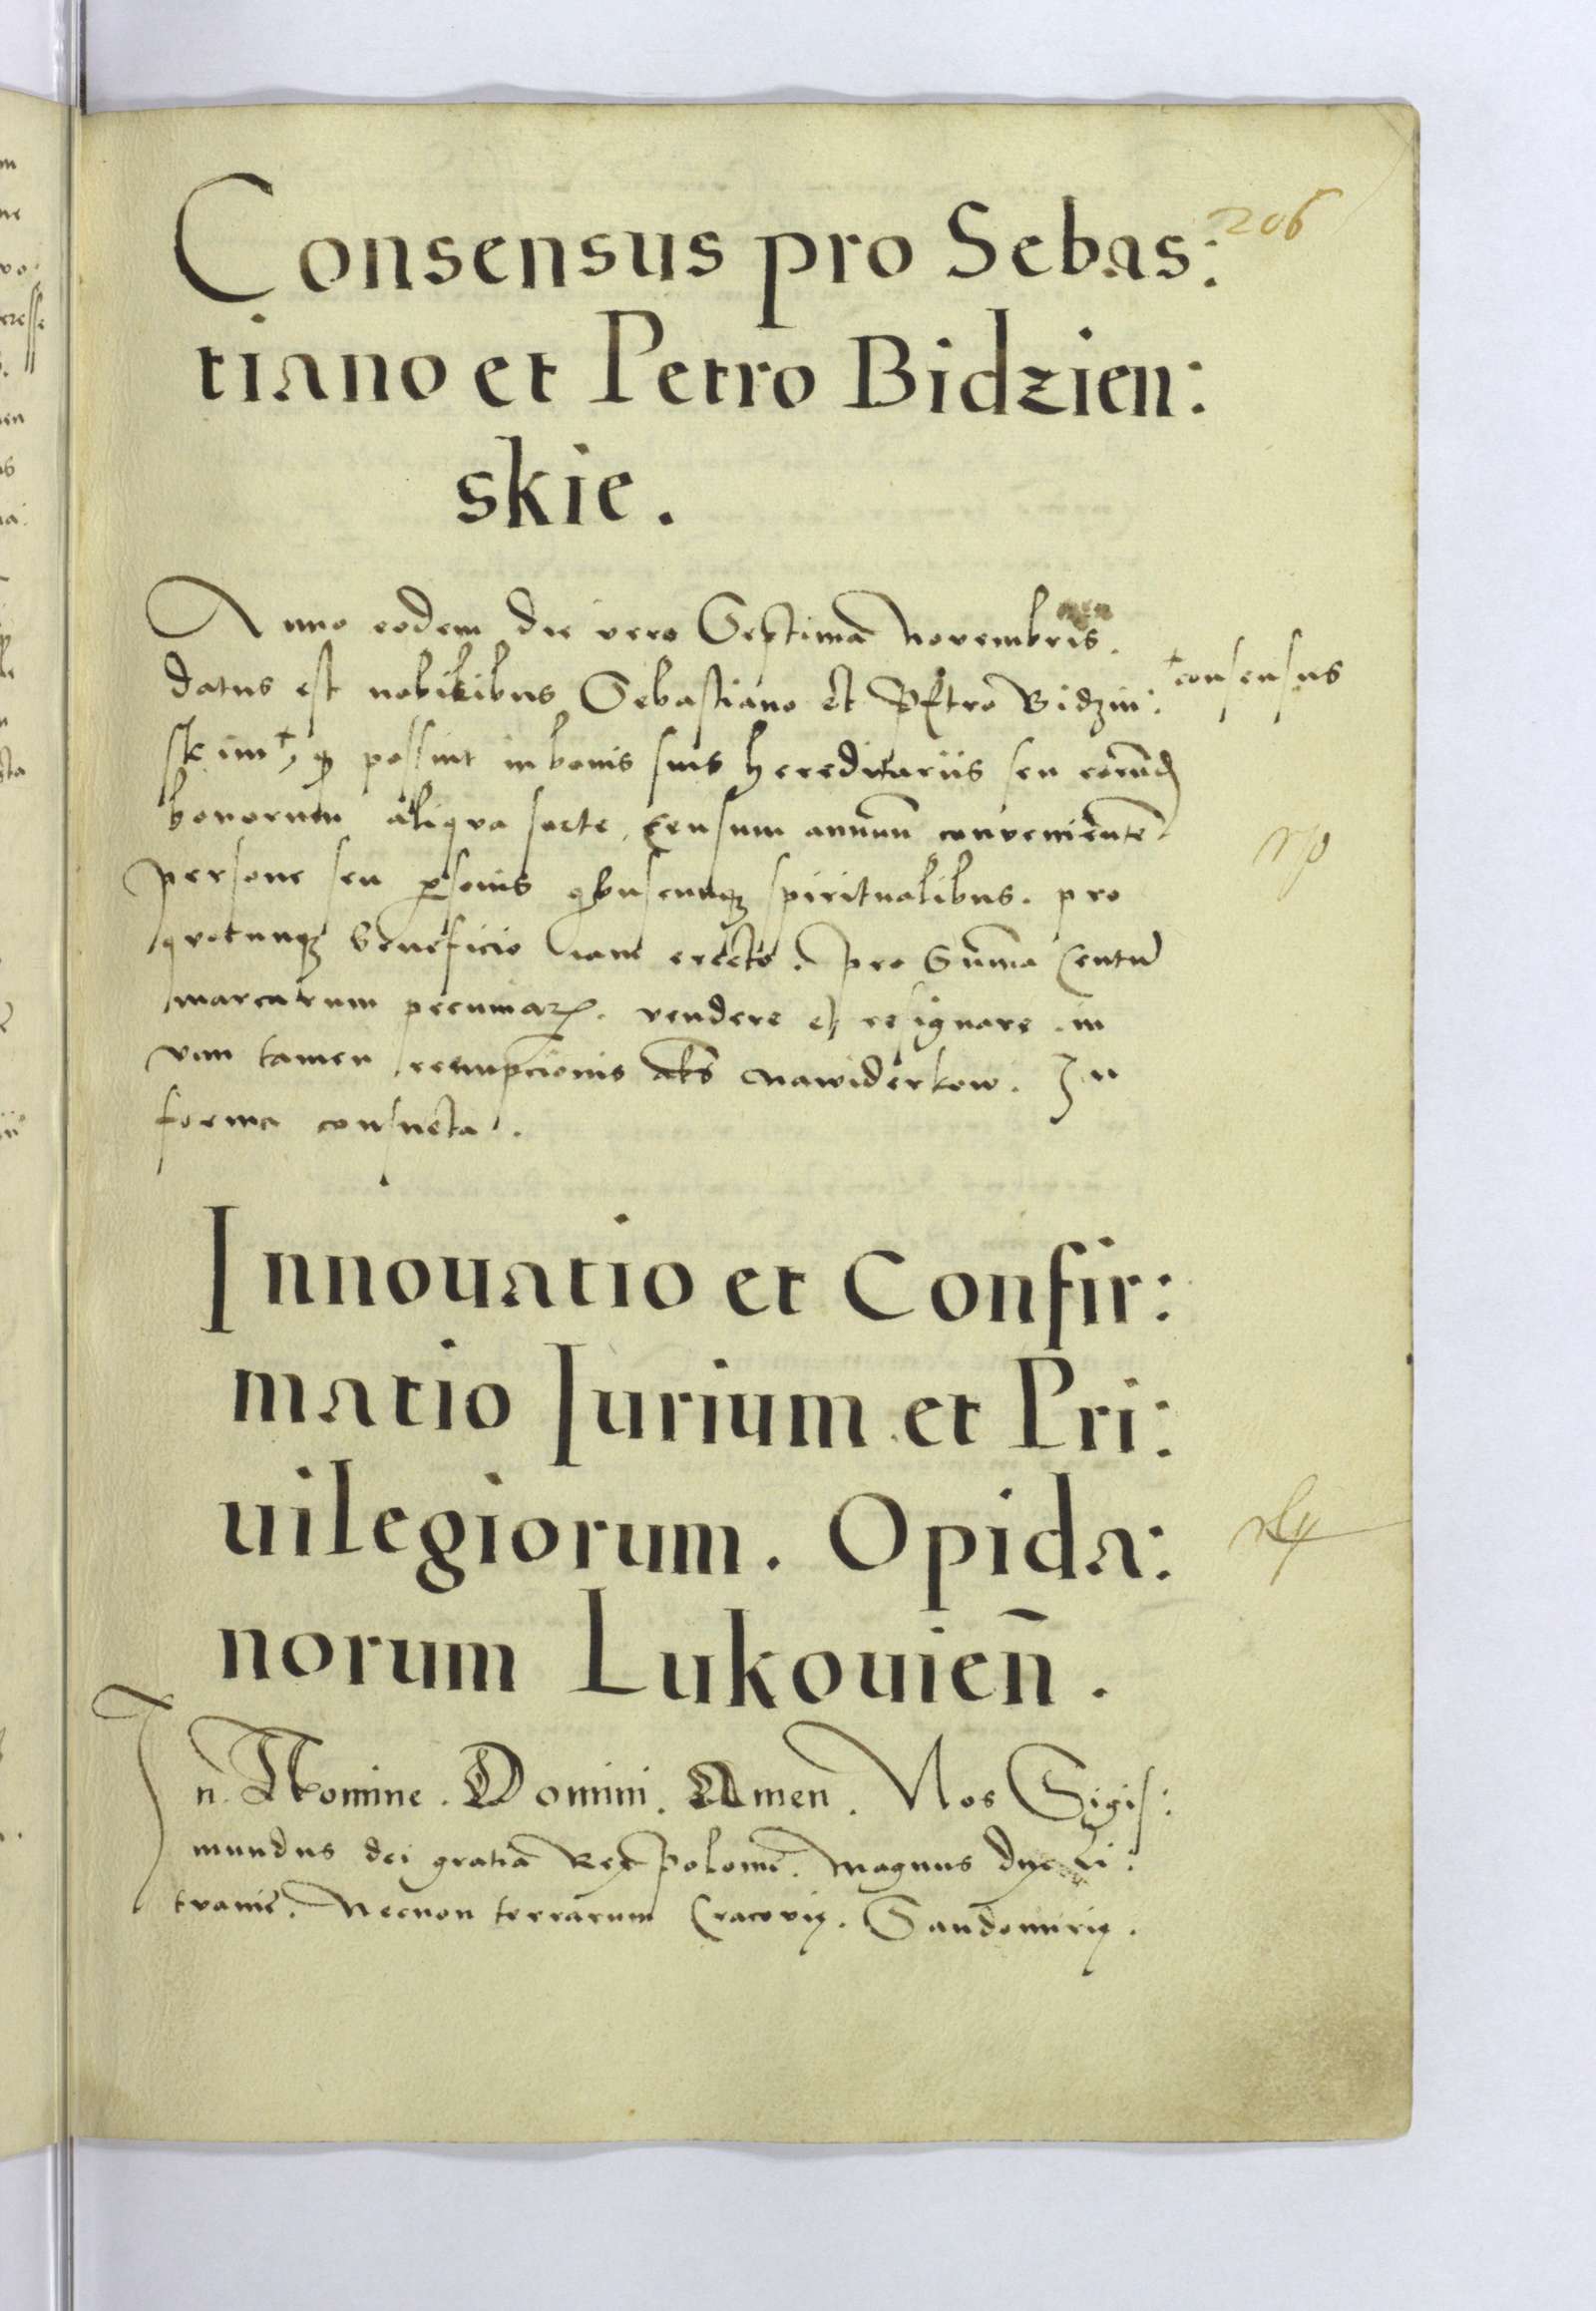 206
Consensus pro Sebas:
tiano et Petro Bidzien:
skie.
Anno eodem die vero Septima Novembris.
datus est nobilibus Sebastiano et Petro Bidzin: †consensus
skim†, q̄ possint in bonis suis hereditariis seu eorund̄
bonorum aliqua sorte, Censum annuū convenientē
persone seu p̲sonis qbuscunqȝ spiritualibus. pro
qvocunqȝ beneficio iam erecto. pro Sum̄a Centū
marcarum pecuniaꝝ. vendere et resignare. in
vim tamen reempcionis al̄s nawiderkow. In
forma consueta.
Innouatio et Confir:
matio Iurium et Pri:
uilegiorum. Opida:
norum Lukouien̄.
In. Nomine. Domini. Amen. Nos Sigis:
mundus dei gratia Rex polonie. Magnus dux Li:
tvanie. Necnon terrarum Cracovię. Sandomirię.